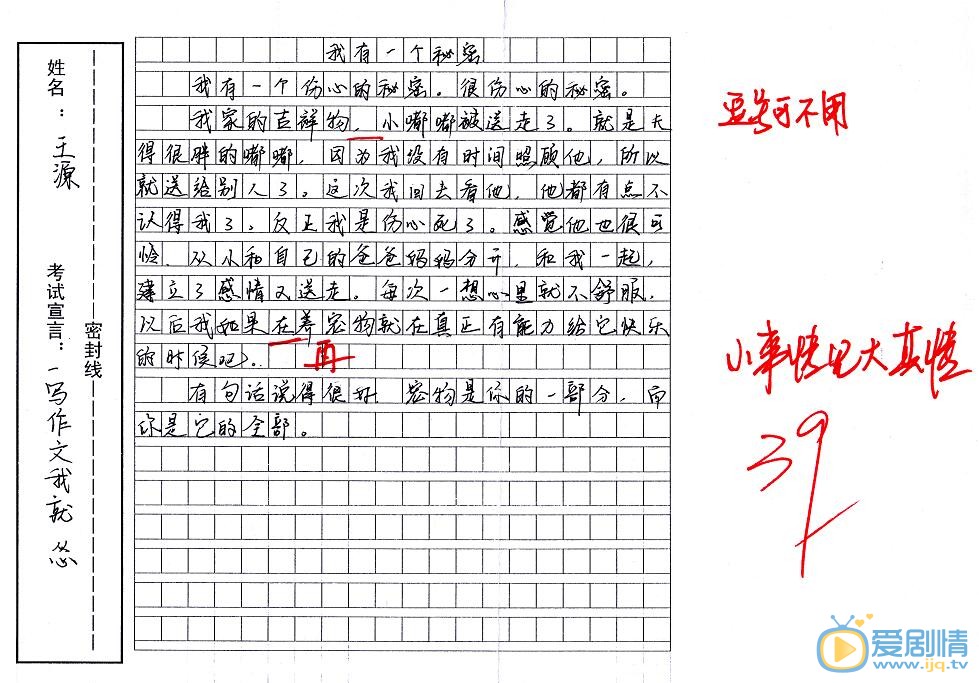 姓名：王源
考试宣言：一写作文我就怂
密封线
我有一个秘密
我有一个伤心的秘密。很伤心的秘密。
我家的吉祥物，小嘟嘟被送走了。就是长
得很胖的嘟嘟，因为我没有时间照顾他，所以
就送给别人了。这次我回去看他，他都有点不
认得我了，反正我是伤心死了。感觉他也很可
怜，从小和自己的爸爸妈妈分开，和我一起，
建立了感情又送走。每次一想心里就不舒服，
以后我如果在养宠物就在真正有能力给它快乐
再
的时候吧。
有句话说得很好，宠物是你的一部分，而
你是它的全部。
逗号可不用
小事情见大真情
39
爱剧情
www.ijq.tv